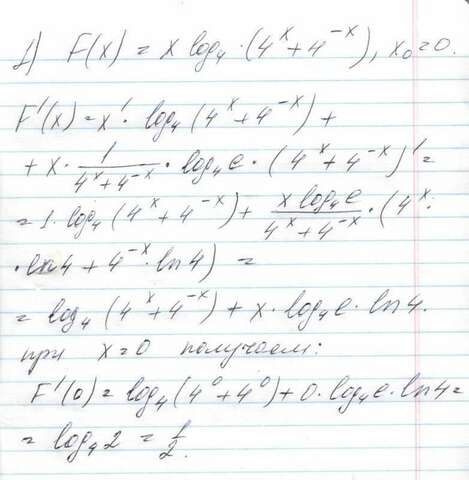 1) F(x) = x log₄ · (4ˣ + 4⁻ˣ), x₀ = 0.
F'(x) = x' · log₄ (4ˣ + 4⁻ˣ) +
+ x · 1/(4ˣ + 4⁻ˣ) · log₄e · (4ˣ + 4⁻ˣ)' =
= 1 · log₄ (4ˣ + 4⁻ˣ) + (x log₄e)/(4ˣ + 4⁻ˣ) · (4ˣ ·
· ln4 + 4⁻ˣ · ln4) =
= log₄ (4ˣ + 4⁻ˣ) + x · log₄e · ln4.
при x = 0 получаем:
F'(0) = log₄ (4⁰ + 4⁰) + 0 · log₄e · ln4 =
= log₄2 = 1/2.